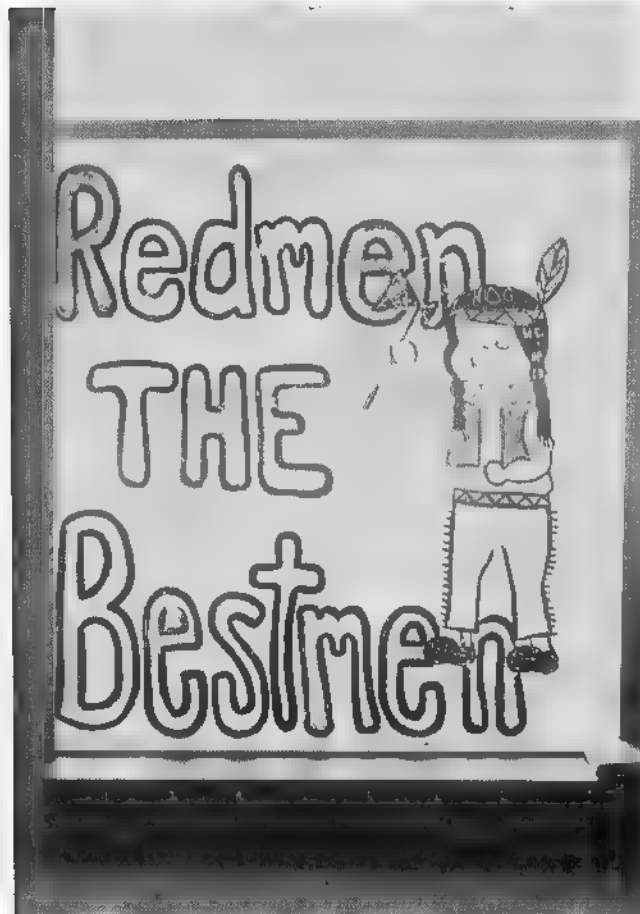 Redmen
THE
Bestmen